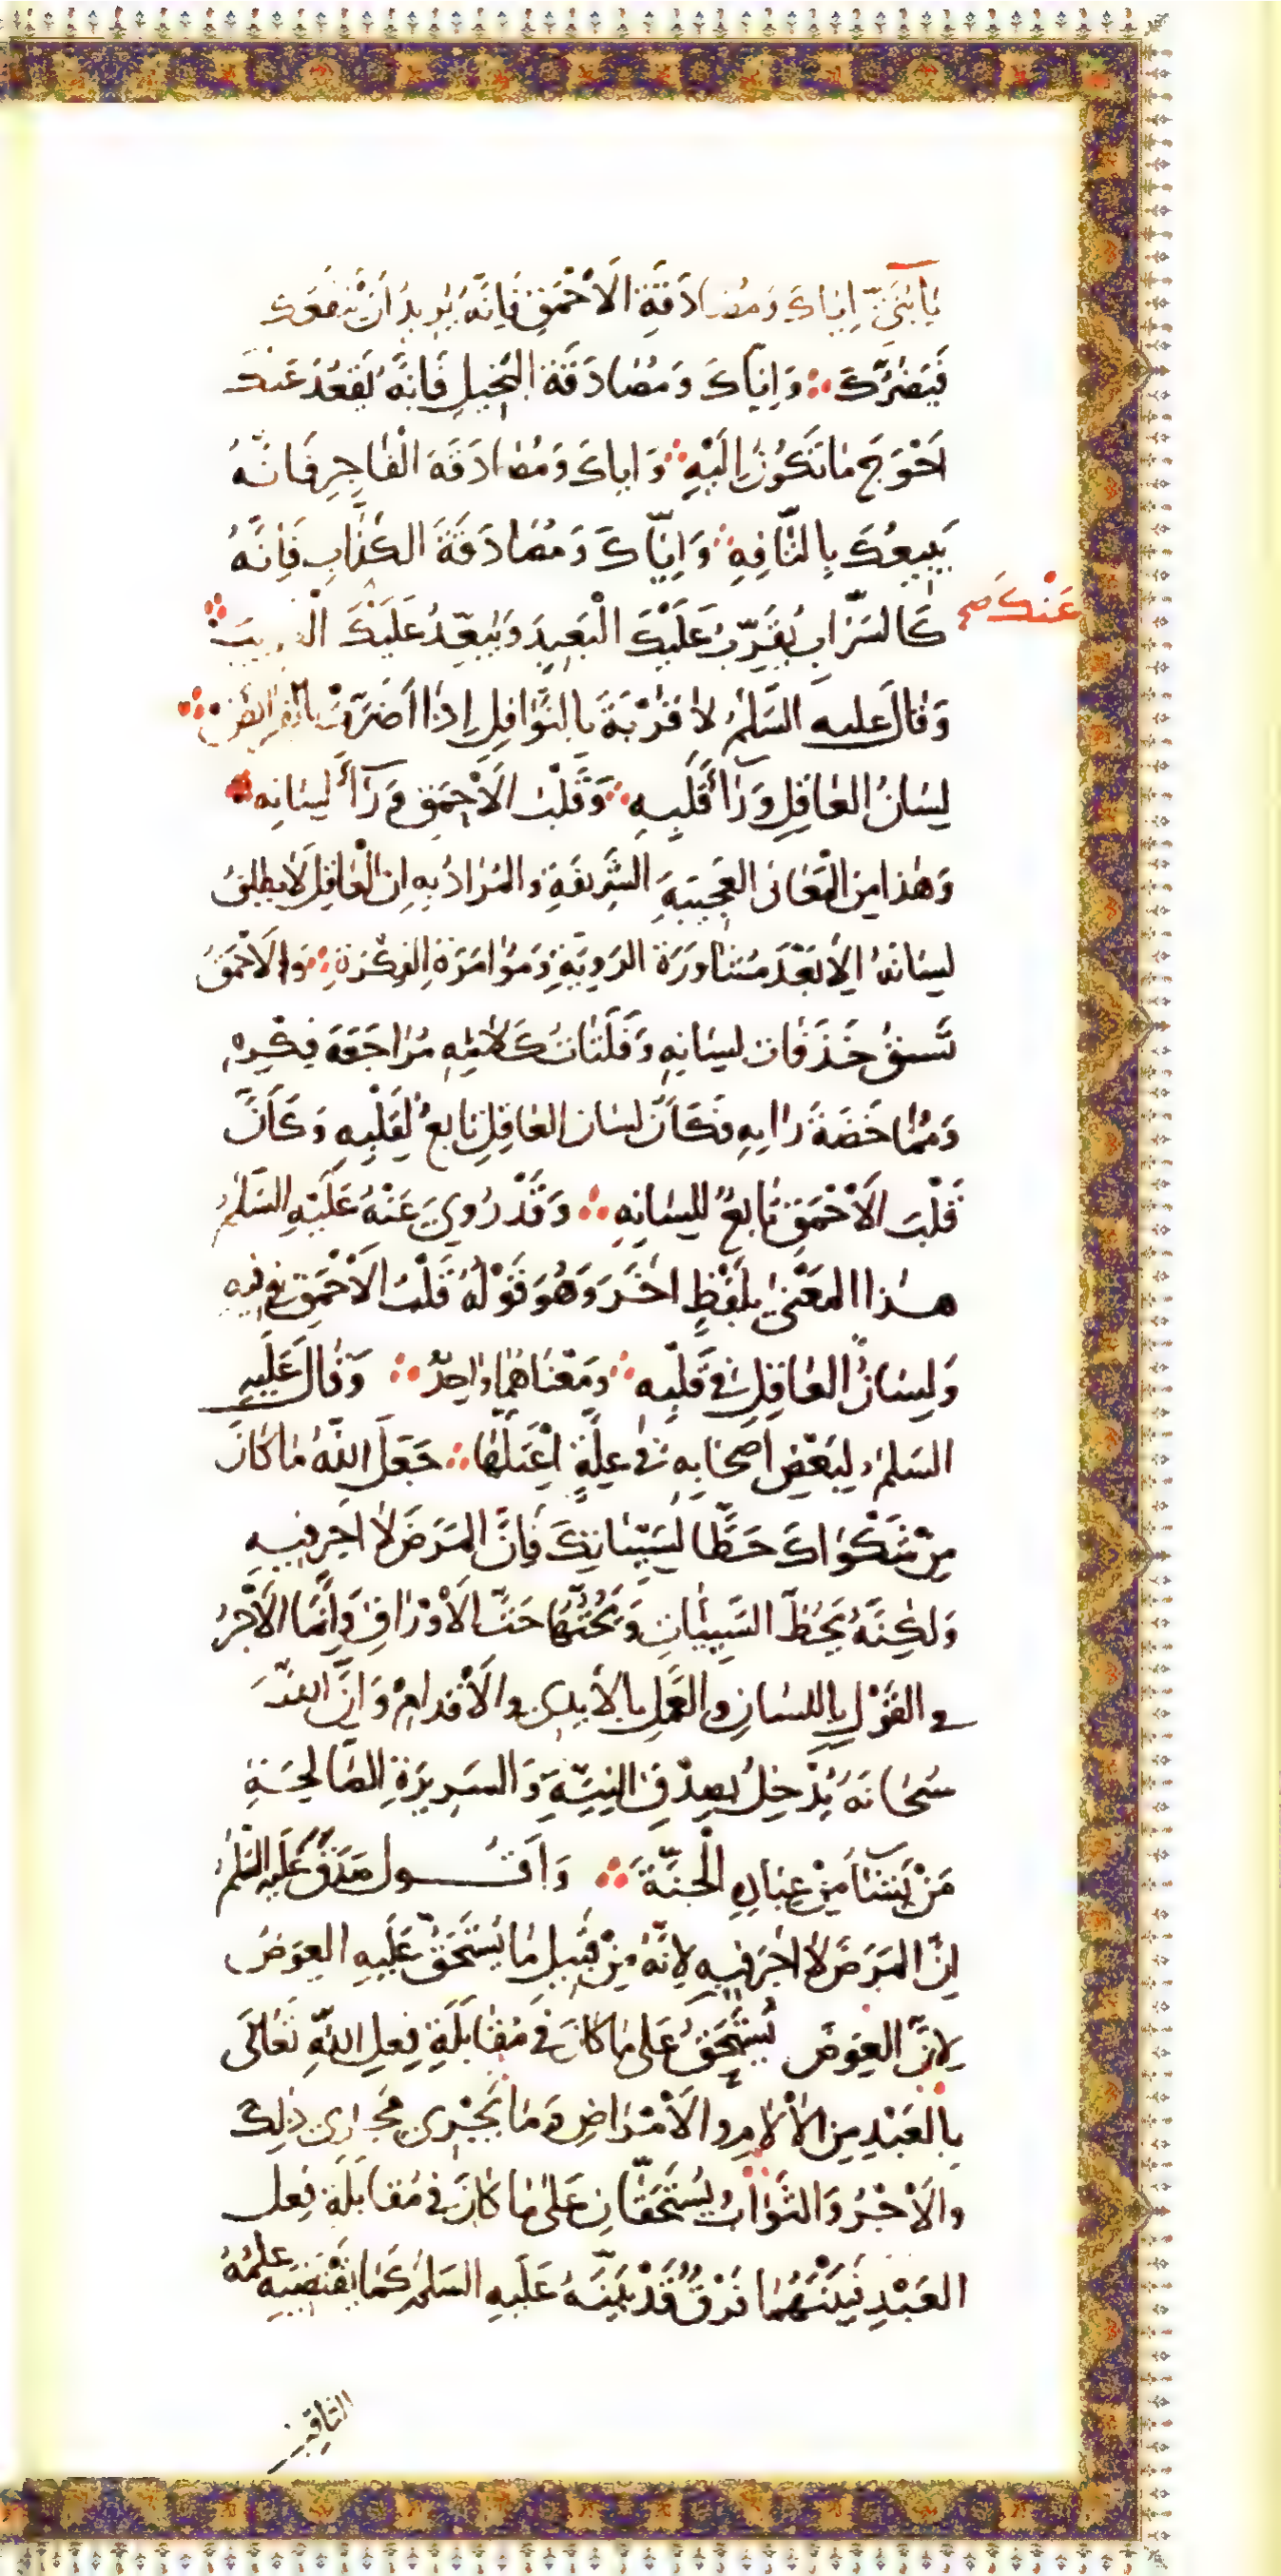 يَا بُنَيَّ اِيَّاكَ وَمُصَادَقَةِ الاَحْمَقِ فَاِنَّهُ يُرِيدُ اَنْ يَنْفَعَكَ
فَيَضُرَّكَ ؞ وَاِيَّاكَ وَمُصَادَقَةَ البَخِيلِ فَاِنَّهُ يَقعُدُ عَنْكَ
اَحْوَجَ مَا تَكُونُ اِلَيْهِ ؞ وَاياكَ وَمُصَادَقَةَ الْفَاجِرِ فَانَّهُ
يَبِيعُكَ بِالتَّافِهِ ؞ وَاِيَّاكَ وَمُصَادَقَةَ الكَذَّابِ فَاِنَّهُ
عَنْكَ صح
كَالسَّرَابِ يُقَرِّبُ عَلَيْكَ الْبَعِيدَ وَيُبَعِّدُ عَلَيْكَ الْقَرِيبَ ؞
وَقَالَ عليه السَّلمُ لاَ قُرْبَةَ بِالنَّوَافِلِ اِذَا اَضَرَّتْ بِالْفَرَايضِ ؞
لِسَانُ العَاقِلِ وَرَاءَ قَلبِهِ ؞ وَقَلْبُ الاَحْمَقِ وَرَاءَ لِسَانِهِ ؞
وَهٰذا مِنَ الْمَعَانى العَجِيبَةِ الشَّرِيفَةِ والمُرَادُ بِهِ اِن الْعَاقِلَ لاَ يطلِقُ
لِسَانَهُ اِلاَّ بَعْدَ مُشَاوَرَة الرَوِيَّةِ وَمُوَامَرَةِ الفِكْرَةِ ؞ وَالاَحْمَقُ
تَسبِقُ حَذَفَات لِسَانِهِ وَفَلَتَاتُ كَلاَمِهِ مُرَاجَعَةَ فِكْرِهِ
وَمُمَاخَضَةَ رَايهِ فَكَاَنَّ لسَانَ العَاقِلِ تَابعٌ لِقَلْبِهِ وَكَاَنَّ
قَلْبَ الاَحْمَقِ تَابعٌ لِلِسَانِهِ ؞ وَقَدْ رُوِيَ عَنْهُ عَلَيْهِ السَّلمُ
هذا المَعْنىٰ بِلَفْظٍ اخَرَ وَهُوَ قَوْلُهُ قَلْبُ الاَحْمَقِ فى فِيهِ
وَلِسَانُ العَاقِلِ فى قَلبِهِ ؞ وَمَعْنَاهُمَا وَاحِدٌ ؞ وَقَالَ عَلَيهِ
السَلمُ لِبَعْضِ اَصحَابِهِ فى عِلّةٍ اعْتَلَّهَا ؞ جَعَلَ اللهُ مَا كَانَ
مِنْ شَكْوَاكَ حَطًّا لِسَيّئَاتِكَ فَاِنَّ المَرَضَ لاَ اَجرَ فِيهِ
وَلكِنَّهُ يَحُطُّ السَّيِّئَاتِ وَيَحُتُّهَا حَتَّ الاَوْرَاقِ وَاِنَّمَا الاَجْرُ
فى القَوْلِ بِاللسَانِ وَالعَمَلِ بِالاَيدِى وَالاَقدامِ وَاِنَّ اللهَ
سُبحَانَهُ يُدْخِلُ بِصِدْقِ النِيَّةِ وَالسَرِيرَةِ الصَّالِحَةِ
مَنْ يَشَآءُ مِنْ عِبَادِهِ الْجنَّةَ ؞ وَاَقُول صَدَقَ عَلَيهِ السَّلمُ
اِنَّ المَرَضَ لاَ اَجرَ فِيهِ لِاَنَّهُ مِنْ قَبِيلِ مَا يُسْتَحَقُّ عَلَيهِ العِوَضُ
لِاَنَّ العِوَضَ يُسْتَحَقُّ عَلىٰ مَا كَانَ فى مُقَابَلَةِ فِعلِ اللهِ تَعَالَى
بِالعَبْدِ مِنَ الاْلاَمِ والاَمْرَاضِ وَمَا يَجْرِى مَجْرى ذلِكَ
والاَجْرُ وَالثَوَابُ يُسْتَحَقَّانِ عَلىٰ مَا كَانَ فى مُقَابَلَةِ فِعل
العَبْدِ فَبَيْنَهُمَا فَرْقٌ قَدْ بَيَّنَهُ عَلَيهِ السَلمُ كَمَا يَقْتَضِيهِ عِلمُهُ
الثاقِب